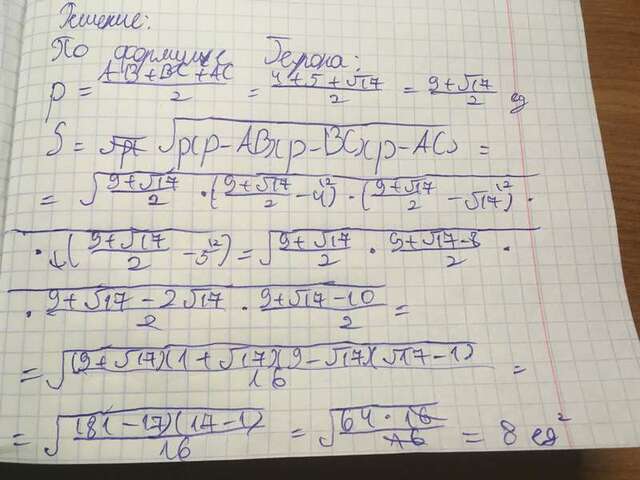 Решение:
По формуле Герона:
p = (AB+BC+AC)/2 = (4+5+√17)/2 = (9+√17)/2 ед
S = √(p(p-AB)(p-BC)(p-AC)) =
= √((9+√17)/2 · ((9+√17)/2 - 4) · ((9+√17)/2 - √17) ·
· ((9+√17)/2 - 5)) = √((9+√17)/2 · (9+√17-8)/2 ·
· (9+√17-2√17)/2 · (9+√17-10)/2) =
= √((9+√17)(1+√17)(9-√17)(√17-1)/16) =
= √((81-17)(17-1)/16) = √(64·16/16) = 8 ед²